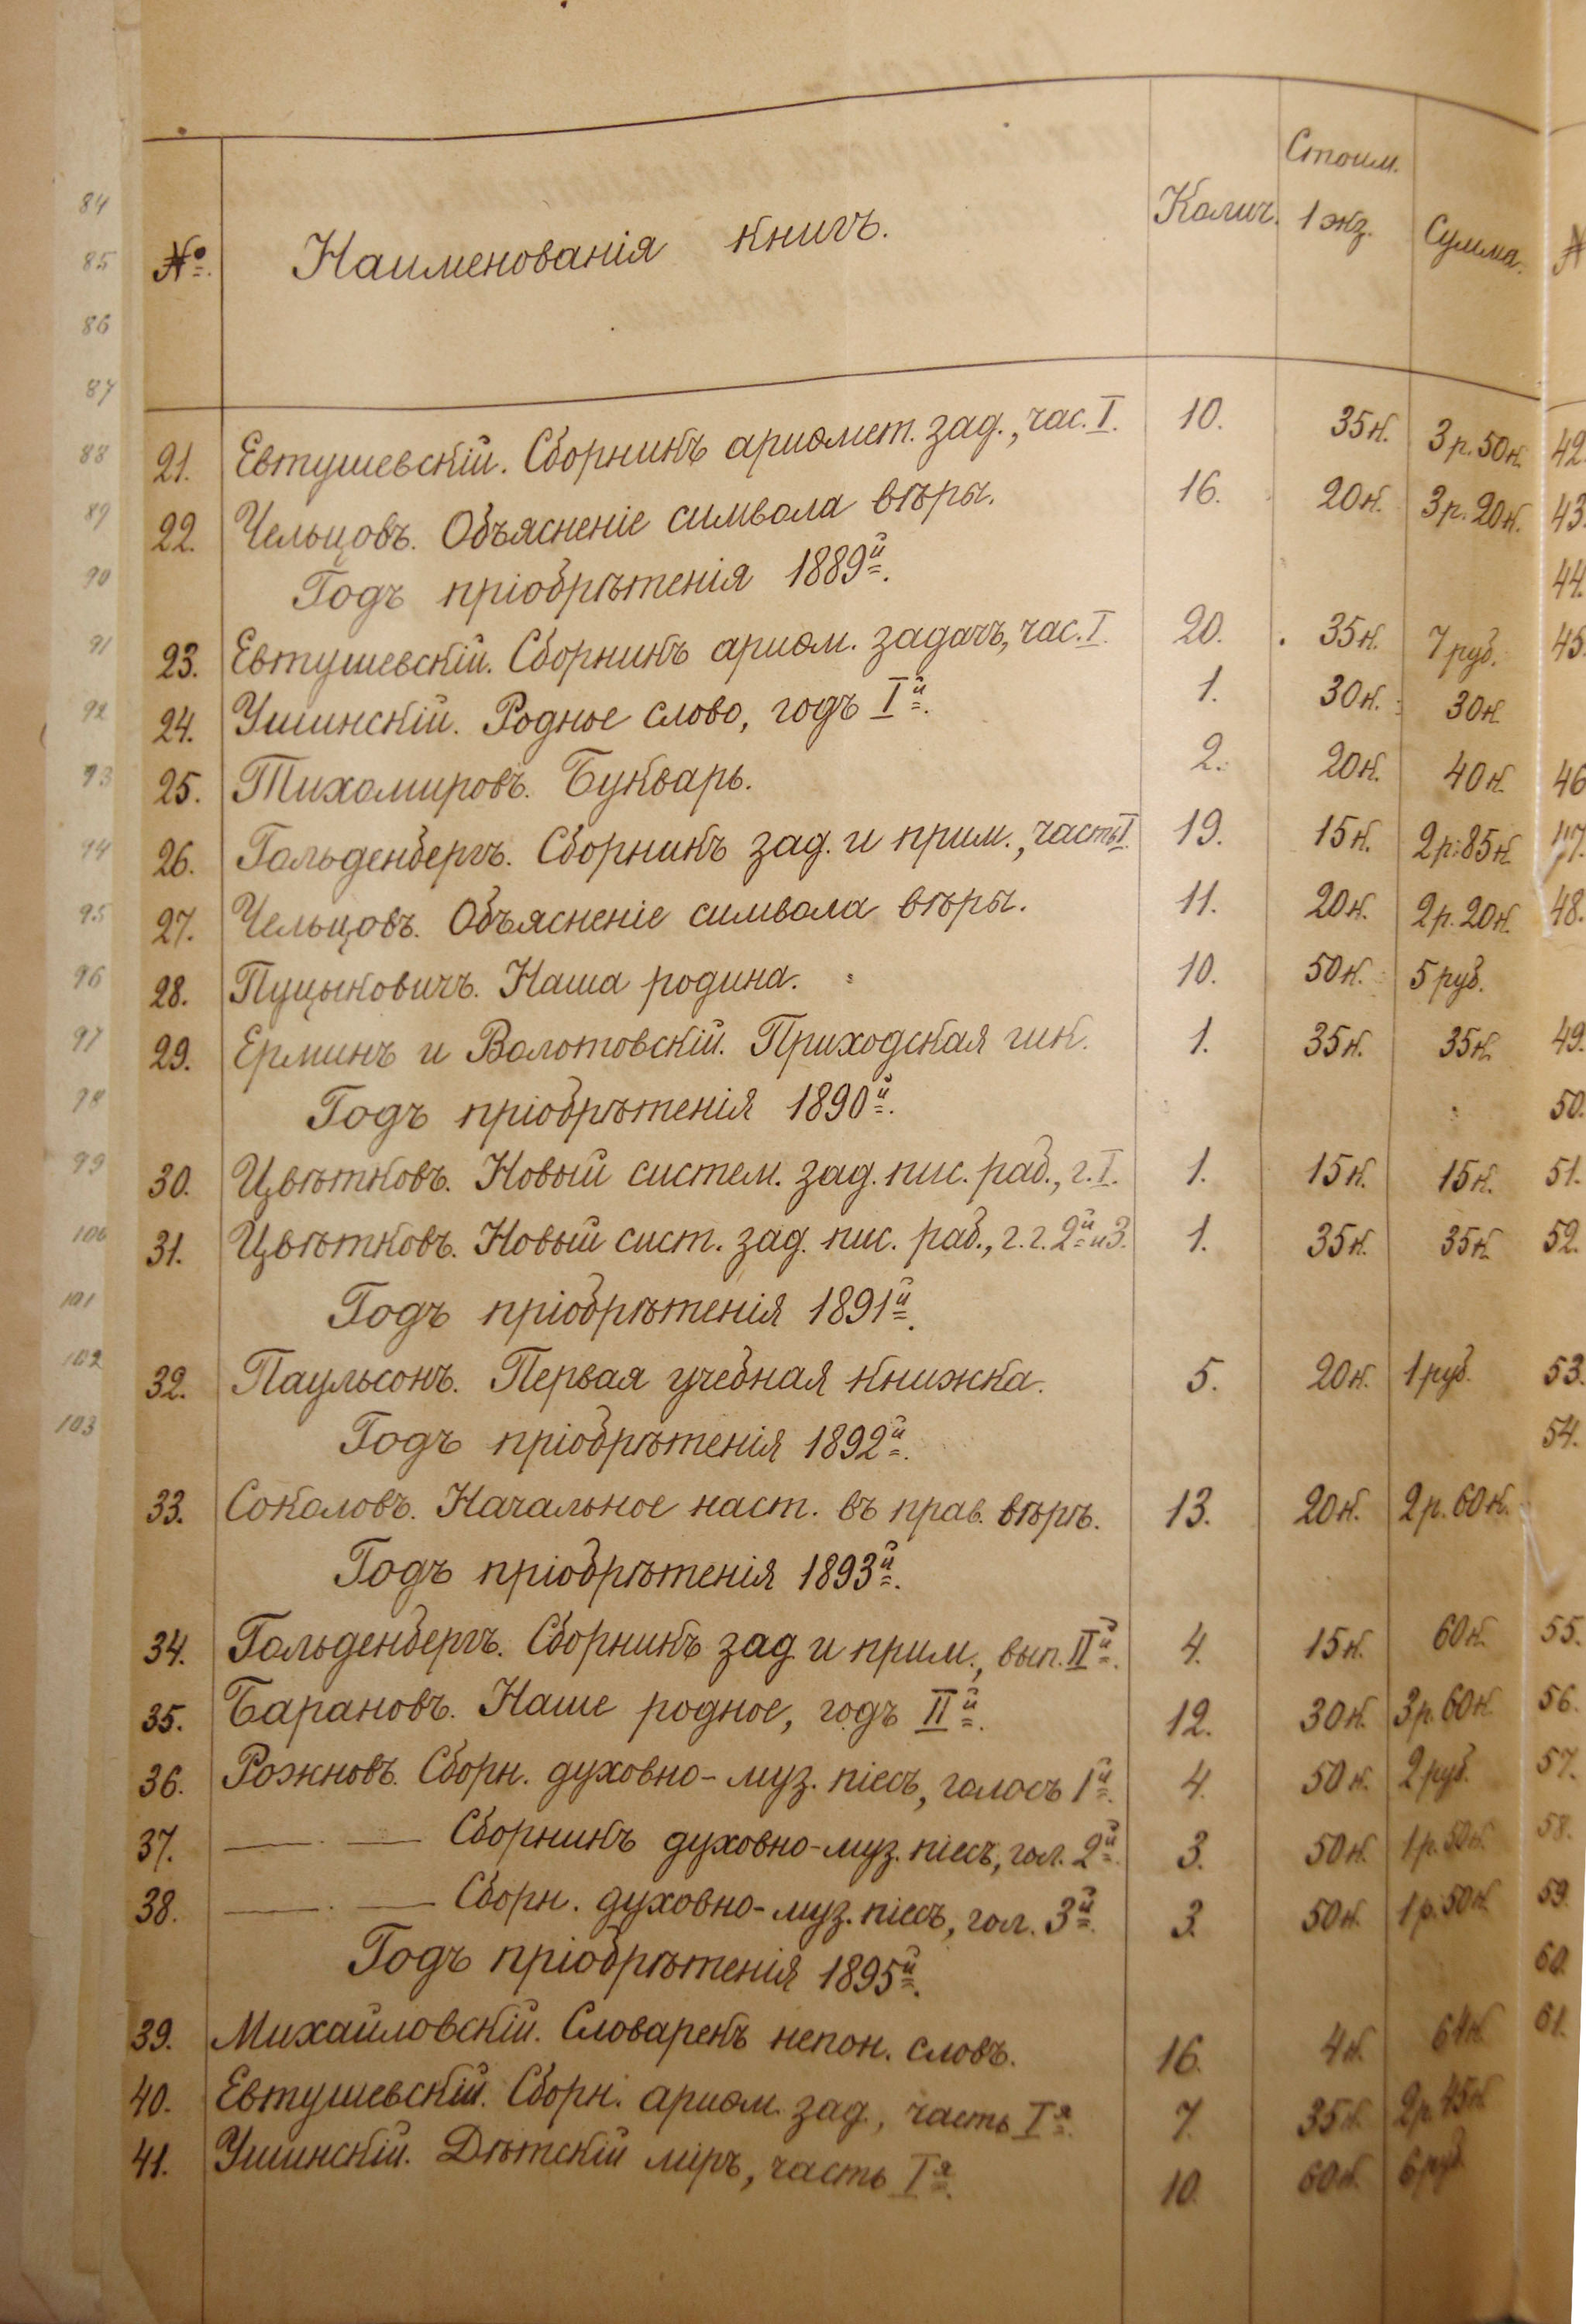 №. Наименованія книгъ. Колич. Стоим. 1 экз. Сумма.
21. Евтушевскій. Сборникъ ариѳмет. зад., час. I. 10. 35к. 3р.50к.
22. Чельцовъ. Объясненіе символа вѣры. 16. 20к. 3р.20к.
Годъ пріобрѣтенія 1889й.
23. Евтушевскій. Сборникъ ариѳм. задачъ, час. I. 20. 35к. 7руб.
24. Ушинскій. Родное слово, годъ Iй. 1. 30к. 30к.
25. Тихомировъ. Букварь. 2. 20к. 40к.
26. Гольденбергъ. Сборникъ зад. и прим., часть I. 19. 15к. 2р.85к.
27. Чельцовъ. Объясненіе символа вѣры. 11. 20к. 2р.20к.
28. Пуцыковичъ. Наша родина. 10. 50к. 5руб.
29. Ерминъ и Волотовскій. Приходская шк. 1. 35к. 35к.
Годъ пріобрѣтенія 1890й.
30. Цвѣтковъ. Новый систем. зад. пис. раб., г. I. 1. 15к. 15к.
31. Цвѣтковъ. Новый сист. зад. пис. раб., г.г. 2й и 3. 1. 35к. 35к.
Годъ пріобрѣтенія 1891й.
32. Паульсонъ. Первая учебная книжка. 5. 20к. 1руб.
Годъ пріобрѣтенія 1892й.
33. Соколовъ. Начальное наст. въ прав. вѣрѣ. 13. 20к. 2р.60к.
Годъ пріобрѣтенія 1893й.
34. Гольденбергъ. Сборникъ зад и прим., вып. IIй. 4. 15к. 60к.
35. Барановъ. Наше родное, годъ IIй. 12. 30к. 3р.60к.
36. Рожновъ. Сборн. духовно-муз. піесъ, голосъ 1й. 4. 50к. 2руб.
37. — — Сборникъ духовно-муз. піесъ, гол. 2й. 3. 50к. 1р.50к.
38. — — Сборн. духовно-муз. піесъ, гол. 3й. 3. 50к. 1р.50к.
Годъ пріобрѣтенія 1895й.
39. Михайловскій. Словарекъ непон. словъ. 16. 4к. 64к.
40. Евтушевскій. Сборн. ариѳм. зад., часть Iя. 7. 35к. 2р.45к.
41. Ушинскій. Дѣтскій міръ, часть Iя. 10. 60к. 6руб.
84
85
86
87
88
89
90
91
92
93
94
95
96
97
98
99
100
101
102
103
42.
43.
44.
45.
46
47.
48.
49.
50.
51.
52.
53.
54.
55.
56.
57.
58.
59.
60.
61.